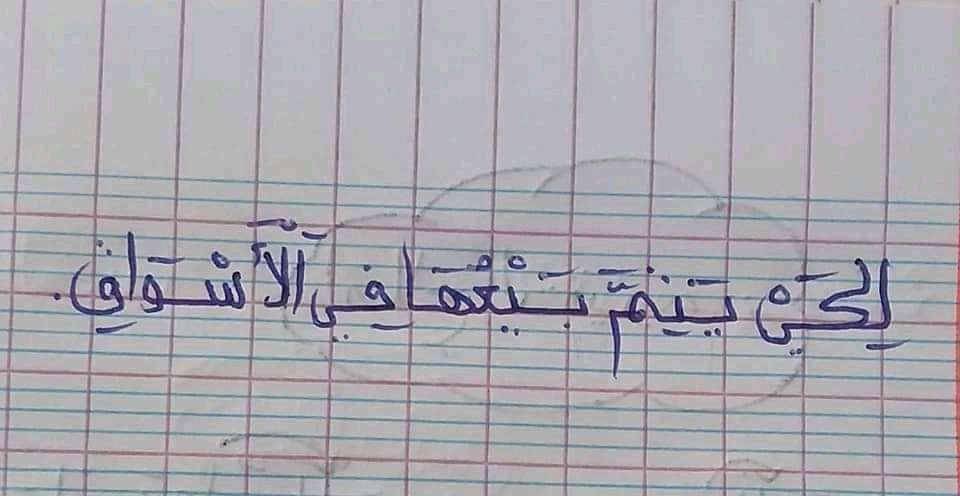 لِكَيْ يَتِمَّ بَيْعُهَا فِي الْأَسْوَاقِ.